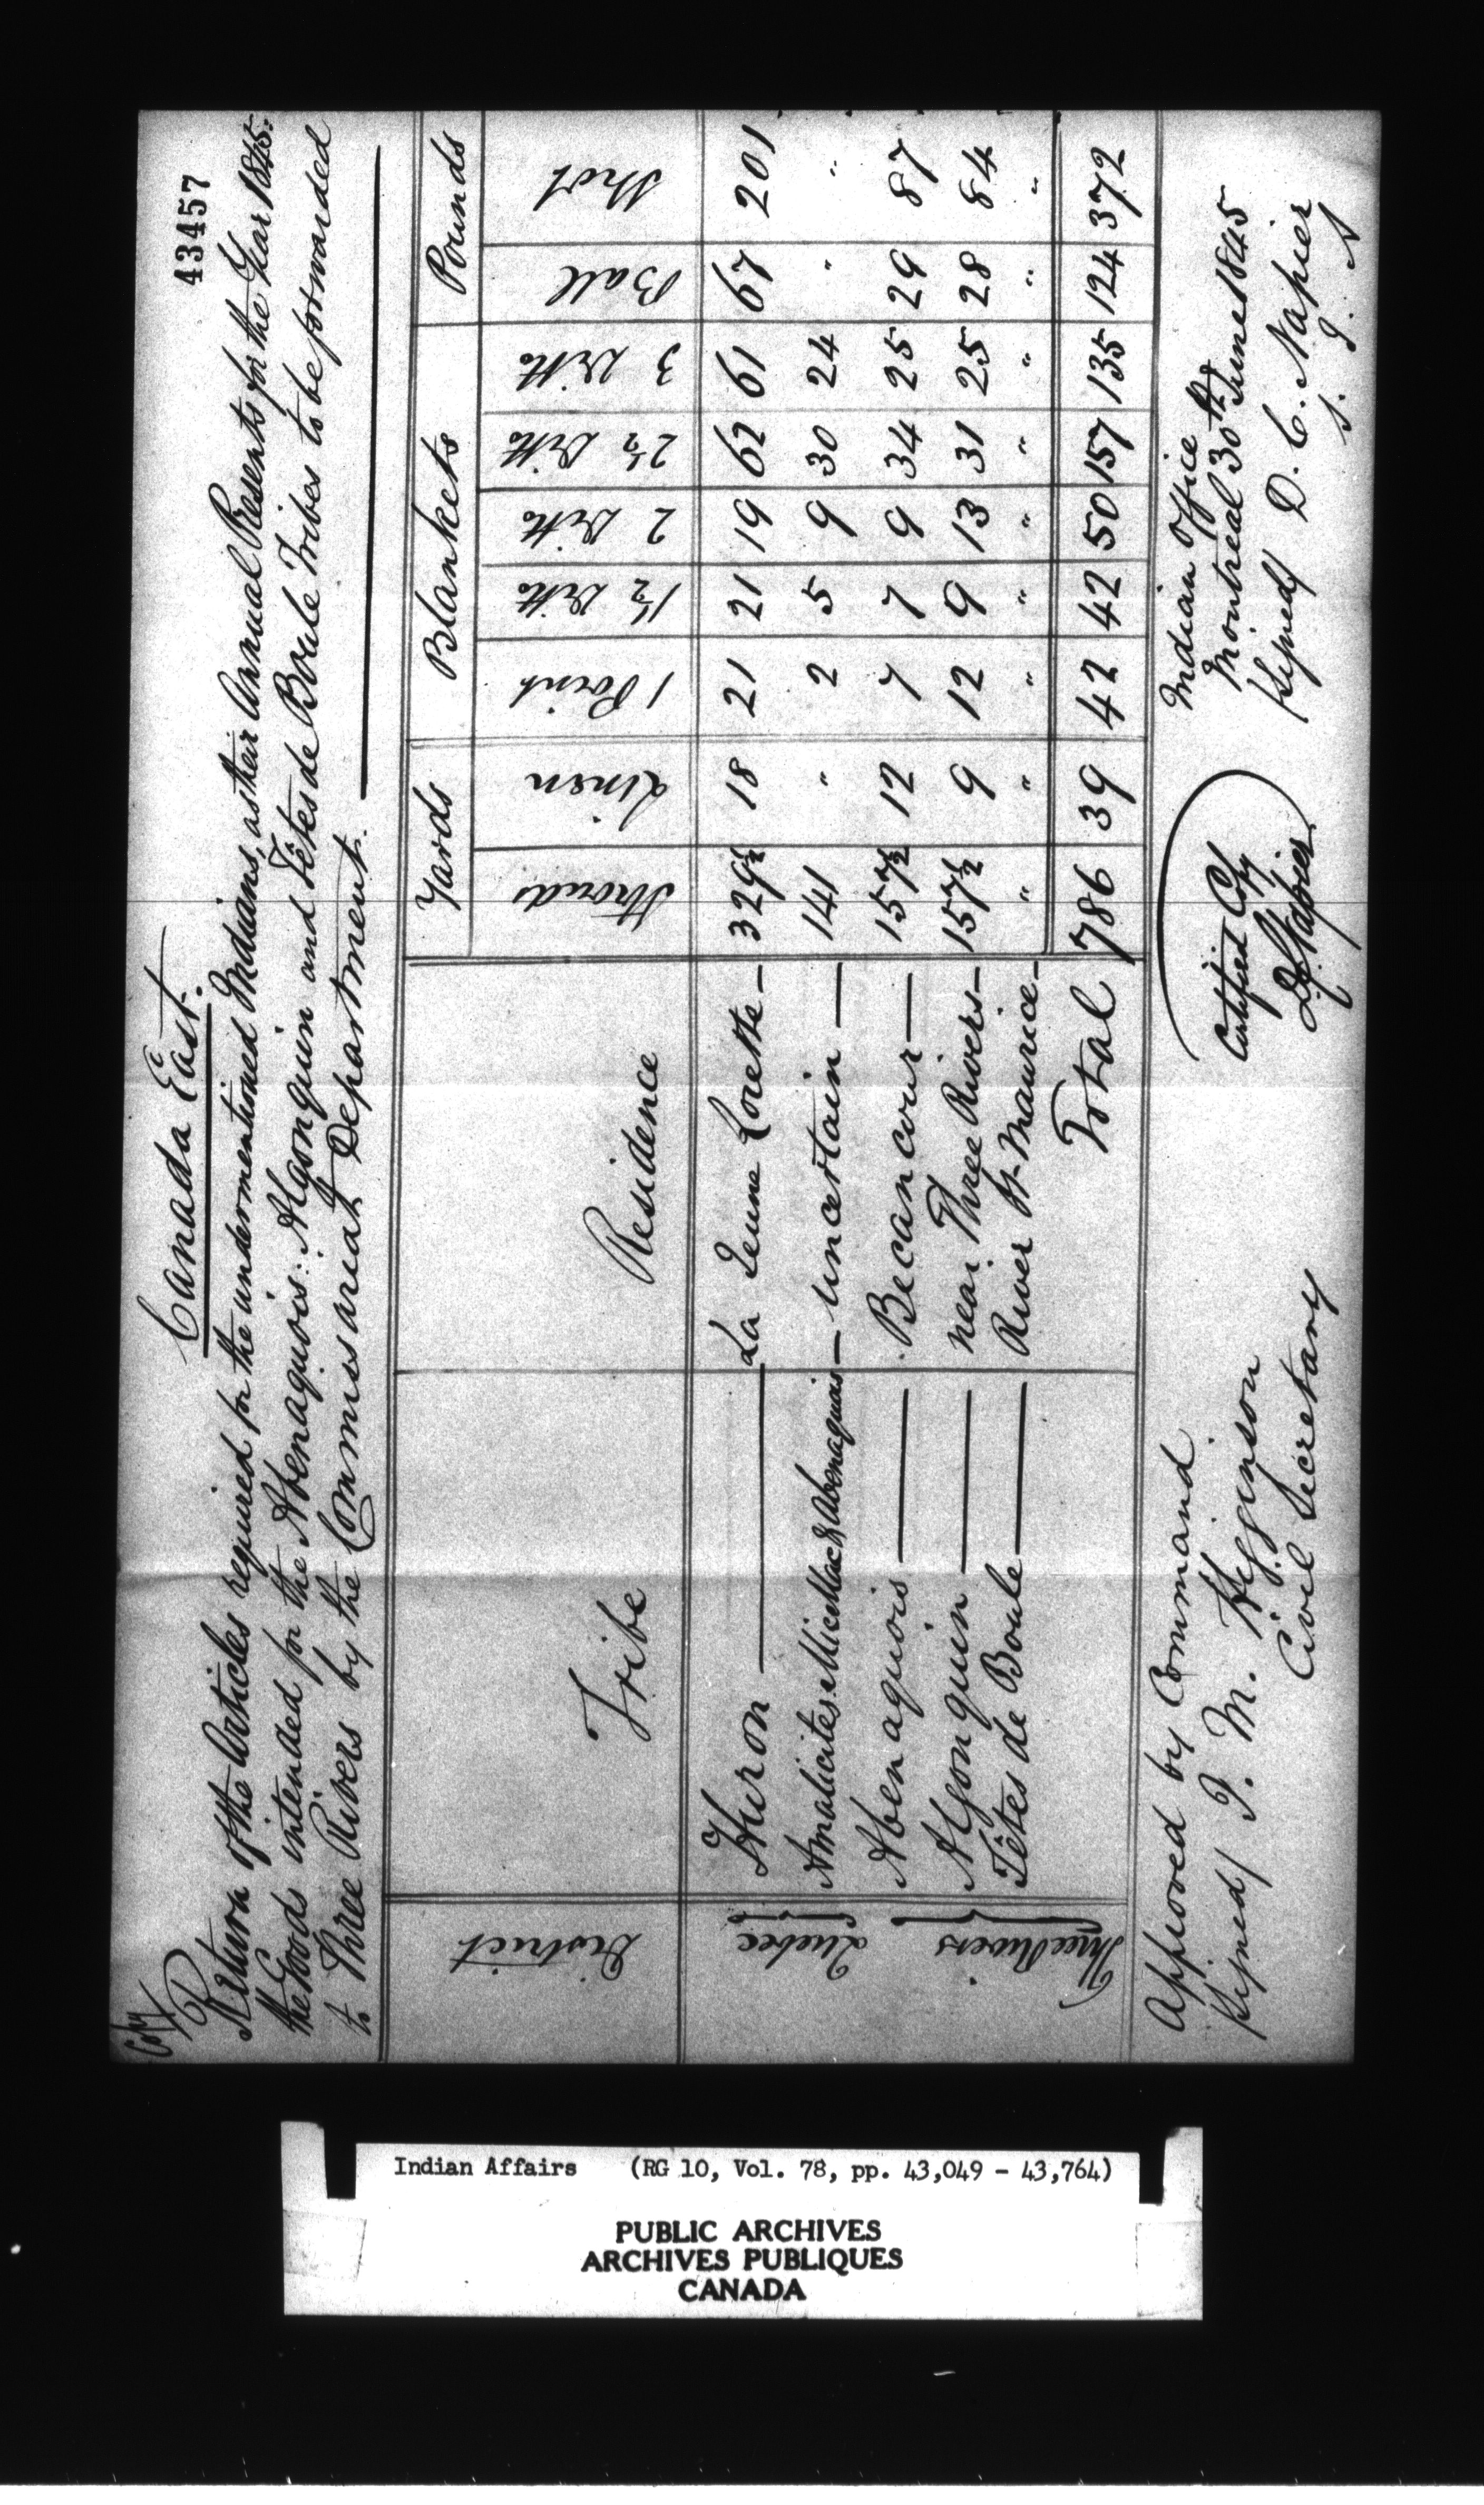 43457
Copy
Canada East.
Return of the Articles required for the undermentioned Indians, as their Annual Presents for the Year 1845:
the Goods intended for the Abenaquois: Algonquin and Têtes de Boule Tribes to be forwarded
to Three Rivers by the Commissariat Department.
District Tribe Residence Yards Blankets Pounds
Strouds Linen 1 Point 1½ Ditto 2 Ditto 2½ Ditto 3 Ditto Ball Shot
Quebec Huron La Jeune Lorette 329½ 18 21 21 19 62 61 67 201
Amalicites Micmac & Abenaquois uncertain 141 " 2 5 9 30 24 " "
Three Rivers Abenaquois Becancour 157½ 12 7 7 9 34 25 29 87
Algonquin near Three Rivers 157½ 9 12 9 13 31 25 28 84
Têtes de Boule River St. Maurice " " " " " " " " "
Total 786 39 42 42 50 157 135 124 372
Approved by Command
Signed / J. M. Higginson
Civil Secretary
Certified Copy
D C Napier
Indian Office
Montreal 30th June 1845
Signed / D. C. Napier
S. I. A
Indian Affairs (RG 10, Vol. 78, pp. 43,049 - 43,764)
PUBLIC ARCHIVES
ARCHIVES PUBLIQUES
CANADA